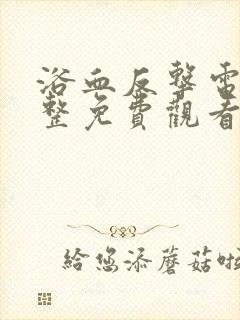 浴血反擊電
整免費觀看
給您添蘑菇啦